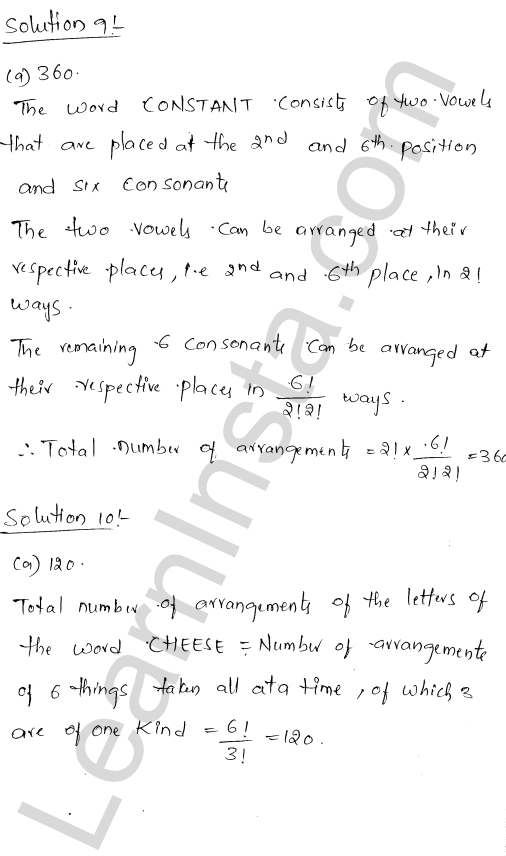 Solution 9:-
(a) 360.
The word CONSTANT consists of two vowels
that are placed at the 2nd and 6th position
and six consonants
The two vowels can be arranged at their
respective places, i.e 2nd and 6th place, in 2!
ways.
The remaining 6 consonants can be arranged at
their respective places in 6!/2!2! ways.
∴ Total number of arrangements = 2! × 6!/2!2! = 360
Solution 10:-
(a) 120.
Total number of arrangements of the letters of
the word CHEESE = Number of arrangements
of 6 things taken all at a time, of which 3
are of one kind = 6!/3! = 120.
LearnInsta.com